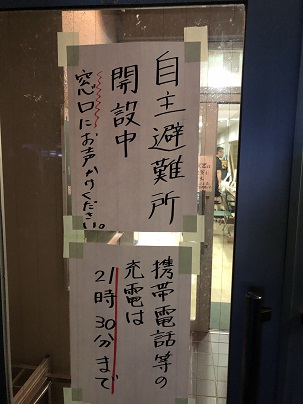 自主避難所
開設中
窓口にお声かけください。
携帯電話等の
充電は
21時30分まで